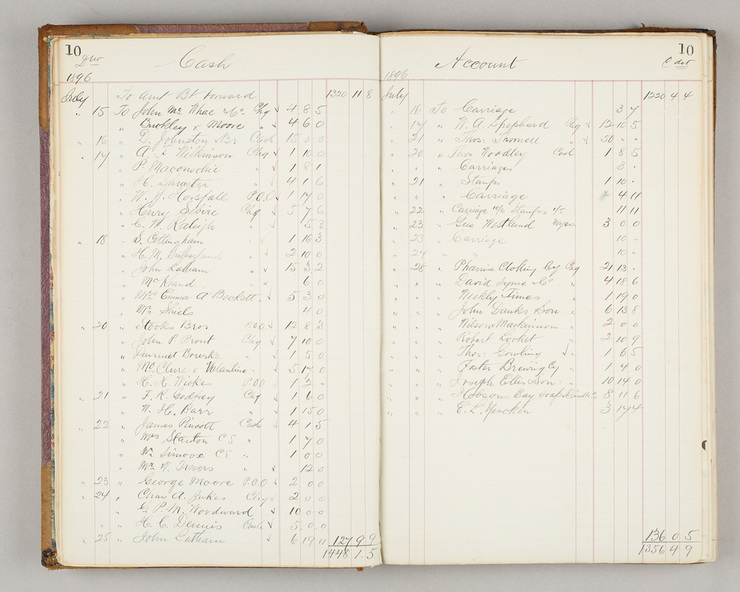 10
Dr
Cash
1896
July To Amt Bt forward 1320 11 8
" 15 To John Mc Whae & Co Chq 4 8 5
" Buckley & Moore " 4 6 0
" 16 " D. Johnston Cash
" 17 " A. Wilkinson Chq 1 10 0
" P. Maconochie " 1 8 1
" H. " 4 1 6
" W. J. Horsfall P.O.O 1 17 0
" Henry Chq 5 7 6
" C. W. Raleigh " 5 3
" 18 " S. Cottingham 1 16 3
" H. M. 2 10 0
" John Latham " 15 3 2
" 6 0
" Mrs Emma A Beckett " 5 3 0
" Mr Shiels 11 0
" 20 " Stooke Bros P.O.O 12 8 3
" John P. Prout Chq 7 10 0
" Samuel Bourke " 1 5 0
" McClure & Valentine " 5 17 0
" H. R. Wickes P.O.O 1 2 -
" 21 " F. R. Godfrey Chq 1 6 0
" W. H. Barr " 1 15 0
" 22 " James Pincott Cash 4 1 5
" Mrs Stanton C S " 1 7 0
" Wm C S " 1 0 0
" Mr W. 12 0
" 23 " George Moore P.O.O 2 0 0
" 24 " Chas A. Jukes Chq 2 0 0
" G. P. M. Woodward " 10 0 0
" H. C. Dennis Cash 5 0 0
" 25 " John Latham " 6 19 11 127 9 9
1448 1 5
10
Account
Cr
1896
July 1220 4 4
" 16 To Carriage 3 7
" 17 " W. A. Shepherd Chq 12 10 5
" 21 " Thos. " 20 - -
" 20 " Thos Woodley Cash 1 8 5
" " Carriage 3 -
" 21 " Stamps 1 10 -
" Carriage 4 11
" 22 Carriage Stamps 11 11
" 23 " Geo Westland Wages 3 0 0
" 23 Carriage 10 -
" 24 " " 10 -
" 25 " Phoenix Clothing Coy Chq 21 13 -
" " David Syme & Co " 4 18 6
" " Weekly Times 1 19 0
" " John Danks & Son " 6 13 8
" " Wilson Mackinnon " 2 0 0
" " Robert " 2 10 9
" " Thos. Gowling " 1 6 5
" " Foster Brewing Cy " 1 4 0
" " Joseph Ellis & Son " 10 14 0
" " Hobson Bay 8 11 6
" " E. L. Yencken 3 17 4
136 0 5
1356 4 9